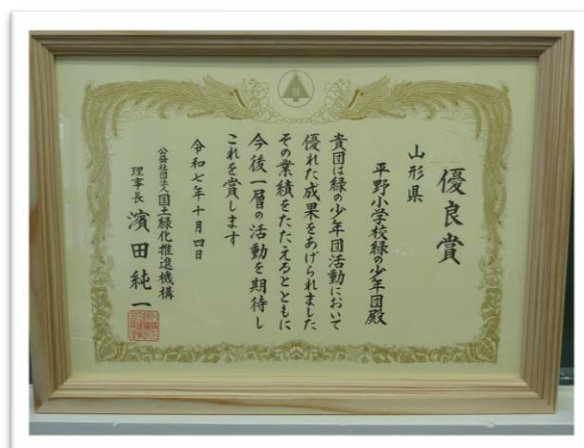 優良賞
山形県
平野小学校緑の少年団殿
貴団は緑の少年団活動において
優れた成果をあげられました
その業績をたたえるとともに
今後一層の活動を期待し
これを賞します
令和七年十月四日
公益社団法人国土緑化推進機構
理事長 濱田純一